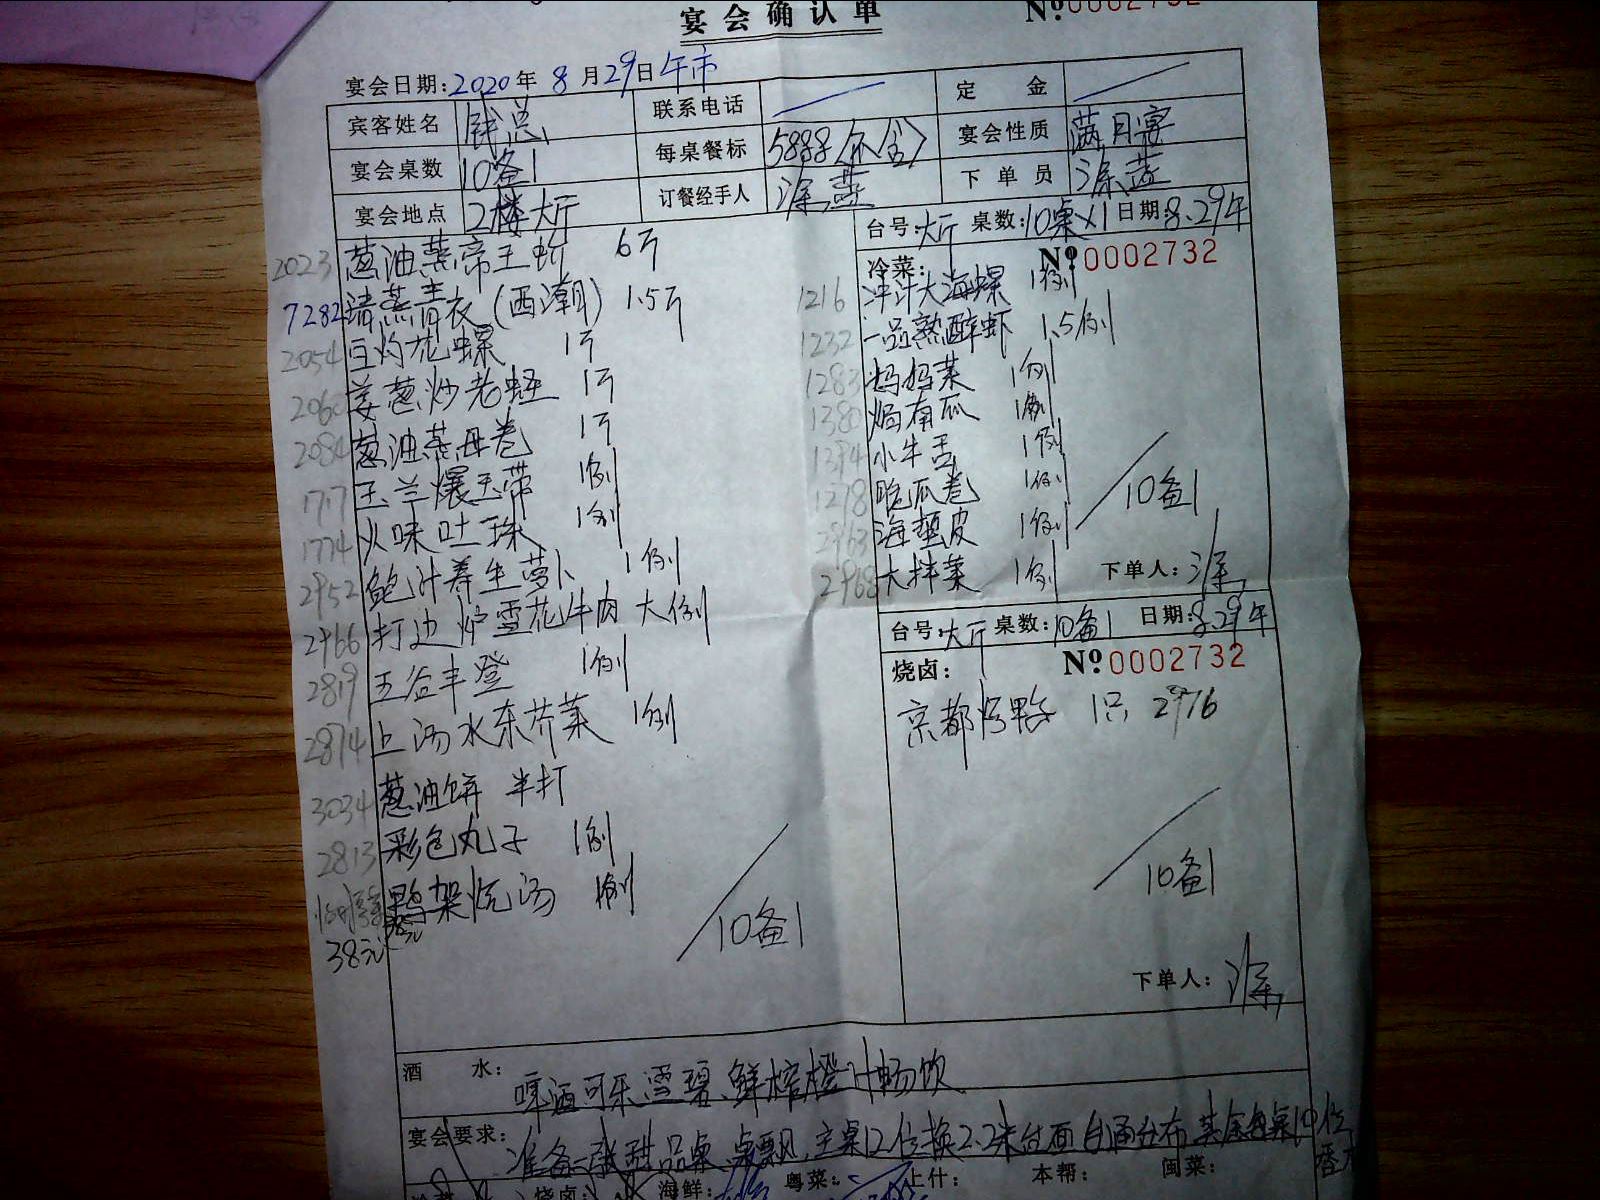 宴会确认单
№0002732
宴会日期:2020年8月29日午市
宾客姓名 钱总 联系电话 定金
宴会桌数 10备1 每桌餐标 5888 宴会性质 满月宴
宴会地点 2楼大厅 订餐经手人 涂燕 下单员 涂燕
台号:大厅 桌数:10桌×1 日期:8.29午
2023 葱油蒸帝王蚧 6斤
7282 清蒸青衣(西潮) 1.5斤
2054 白灼花螺 1斤
2060 姜葱炒老蛏 1斤
2084 葱油蒸丹卷 1斤
1717 玉兰爆玉带 1例
1774 火味吐珠 1例
2952 鲍汁养生萝卜 1例
2966 打边炉雪花牛肉 大例
2819 五谷丰登 1例
2874 上汤水东芥菜 1例
3034 葱油饼 半打
2813 彩色丸子 1例
鸭架烧汤 1例
38元
10备1
冷菜: №0002732
1216 冲汁大海螺 1例
1232 一品熟醉虾 1.5例
1283 妈妈菜 1例
1380 焗南瓜 1例
1394 小牛舌 1例
1278 脆瓜卷 1例
2963 海蜇皮 1例
2968 大拌菜 1例
10备1
下单人:涂
台号:大厅 桌数:10备1 日期:8.29午
烧卤: №0002732
京都烤鸭 1只 2976
10备1
下单人:涂
酒水: 啤酒可乐雪碧、鲜榨橙汁畅饮
宴会要求: 准备一张甜品桌、桌飘,主桌12位换2.2米台面 台面台布 其余每桌10位
烧卤: 海鲜: 粤菜: 上什: 本帮: 闽菜: